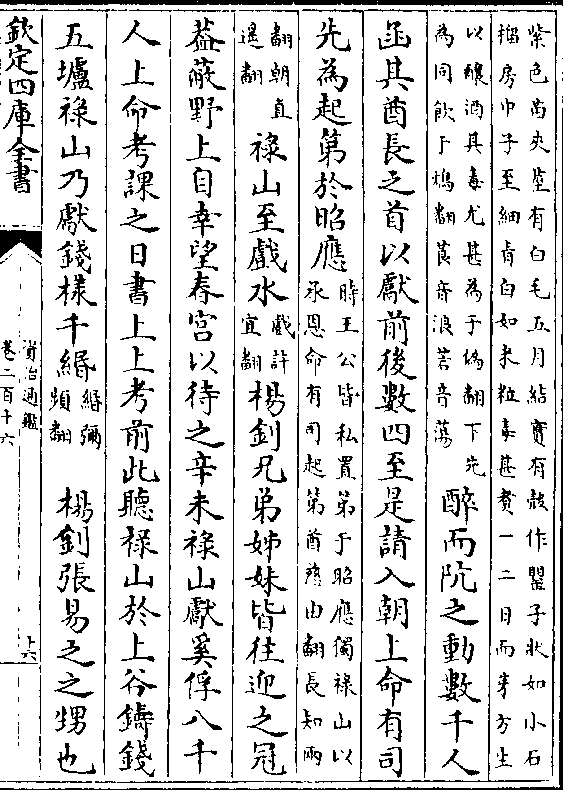 紫色尚夾莖有白毛五月結實有殼作罌子狀如小石
榴房中子至細青白如米粒毒甚煑一二日而芽方生
以釀酒其毒尤甚為于偽翻下先
為同飲于鴆翻莨音浪菪音蕩
醉而阬之動數千人
函其酋長之首以獻前後數四至是請入朝上命有司
先為起第於昭應
時王公皆私置第于昭應獨祿山以
承恩命有司起第酋慈由翻長知兩
翻朝直
遥翻
祿山至戲水
戲許
宜翻
楊釗兄弟姊妹皆往迎之冠
葢蔽野上自幸望春宮以待之辛未祿山獻奚俘八千
人上命考課之日書上上考前此聽祿山於上谷鑄錢
五壚祿山乃獻錢樣千緡
緡彌
頻翻
楊釗張易之之甥也
欽定四庫全書
資治通鑑
卷二百十六